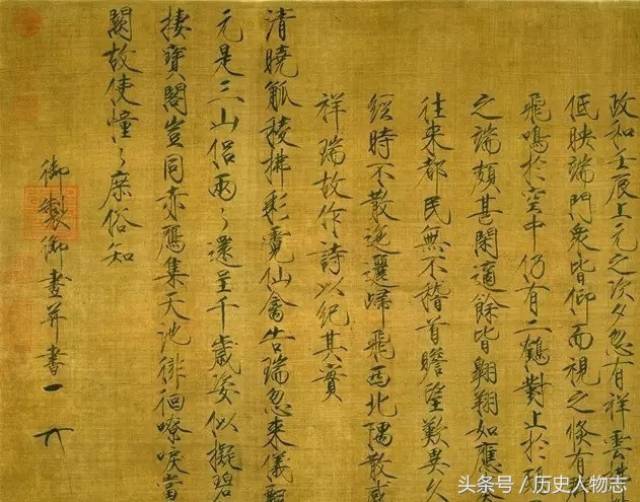 政和壬辰上元之次夕忽有祥雲拂
低映端門衆皆仰而視之倏有
飛鳴於空中仍有二鶴對止於鴟
之端頗甚閑適餘皆翱翔如應
往來都民無不稽首瞻望歎異久
經時不散迤邐歸飛西北隅散感
祥瑞故作詩以紀其實
清曉觚稜拂彩霓仙禽告瑞忽來儀飄
元是三山侶兩〻還呈千歲姿似擬碧
棲寶閣豈同赤鴈集天池徘徊嘹唳當
闕故使憧〻庶俗知
御製御畫并書
头条号 / 历史人物志